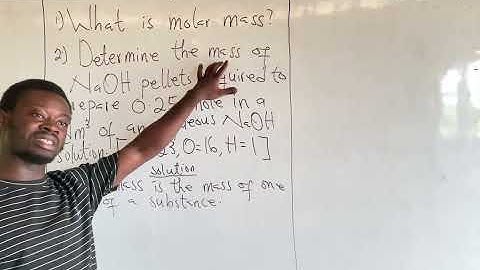 1) What is molar mass?
2) Determine the mass of
NaOH pellets required to
0.25 mole in a
of an aqueous NaOH
solution 23, O=16, H=1]
solution
mass is the mass of one
of a substance.